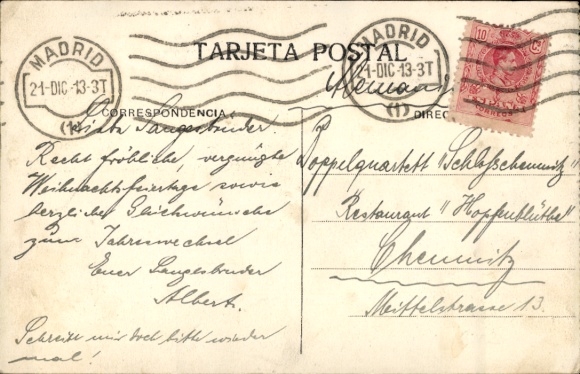 MADRID
21·DIC·13·3T
(1)
TARJETA POSTAL
MADRID
21·DIC·13·3T
(1)
10 Cs
CORRESPONDENCIA
DIREC
Liebe Sangesbrüder.
Recht fröhliche, vergnügte
Weihnachtsfeiertage sowie
herzliche Glückwünsche
zum Jahreswechsel
Euer Sangesbruder
Albert.
Schreibt mir doch bitte wieder
mal!
Alemania
Doppelquartett "Schloßchemnitz"
Restaurant "Hopfenblüthe"
Chemnitz
Mittelstrasse 13.